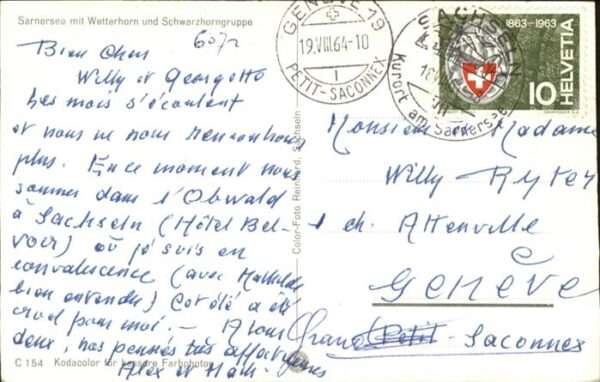 Sarnersee mit Wetterhorn und Schwarzhorngruppe
Bien chers
Willy et Georgette
Les mois s'écoulent
et nous ne nous rencontrons
plus. En ce moment nous
sommes dans l'Obwald
à Sachseln (Hôtel Bel-
voir) où je suis en
convalescence (avec Mathilde
bien entendu) Cet été a été
cruel pour moi. — A vous
deux, nos pensées très affectueuses
Alex et Math.
C 154 Kodacolor für bessere Farbphotos
Color-Foto Reinhard, Sachseln
GENÈVE 19
19.VIII.64-10
1
PETIT-SACONNEX
SACHSELN
Kurort am Sarnersee
1863-1963
HELVETIA
10
Monsieur Madame
Willy Ryter
1 ch. Attenville
GENÈVE
Grand Petit - Saconnex